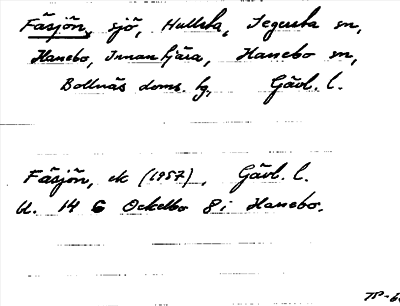 Fäsjön, sjö, Hullsta, Segersta sn,
Hanebo, Innantjära, Hanebo sn,
Bollnäs doms. hg, Gävl. l.
Fäsjön, ek (1957), Gävl. l.
bl. 14 G Ockelbo 8 i Hanebo.